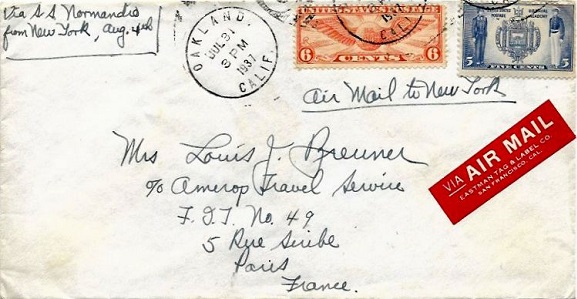 Via S.S. Normandie
from New York, Aug. 4th
OAKLAND,
CALIF.
JUL 31
3 PM
1937
UNITED STATES POSTAGE
6 CENTS 6
5 FIVE CENTS 5
Air Mail to New York
VIA AIR MAIL
EASTMAN TAG & LABEL CO.
SAN FRANCISCO, CAL.
Mrs Louis J. Breuner
c/o Amerop Travel Service
F.D.T. No. 49
5 Rue Scribe
Paris
France.